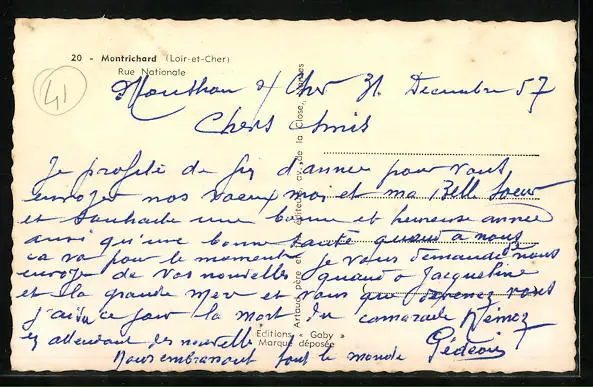 20 - Montrichard (Loir-et-Cher)
Rue Nationale
41
Mouthou s/ Cher 31 Decembre 57
Chers Amis
Je profite de fin d'annee pour vous
envoyer nos voeux, moi et ma Bell Soeur
et Souhaite une bonne et heureuse année
ainsi qu'une bonne Santé quand a nous
ca va pour le moment Je vous demande de nous
envoyer de vos nouvelles quand a Jacqueline
et la grande Mere et Vous
j'ai ce jour la mort du camarade
en attendant des nouvelles
Nous embrassont tout le monde Gédéon
Editions « Gaby »
Marque déposée
Artaud père et fils éditeurs, av. de la Close, Nantes